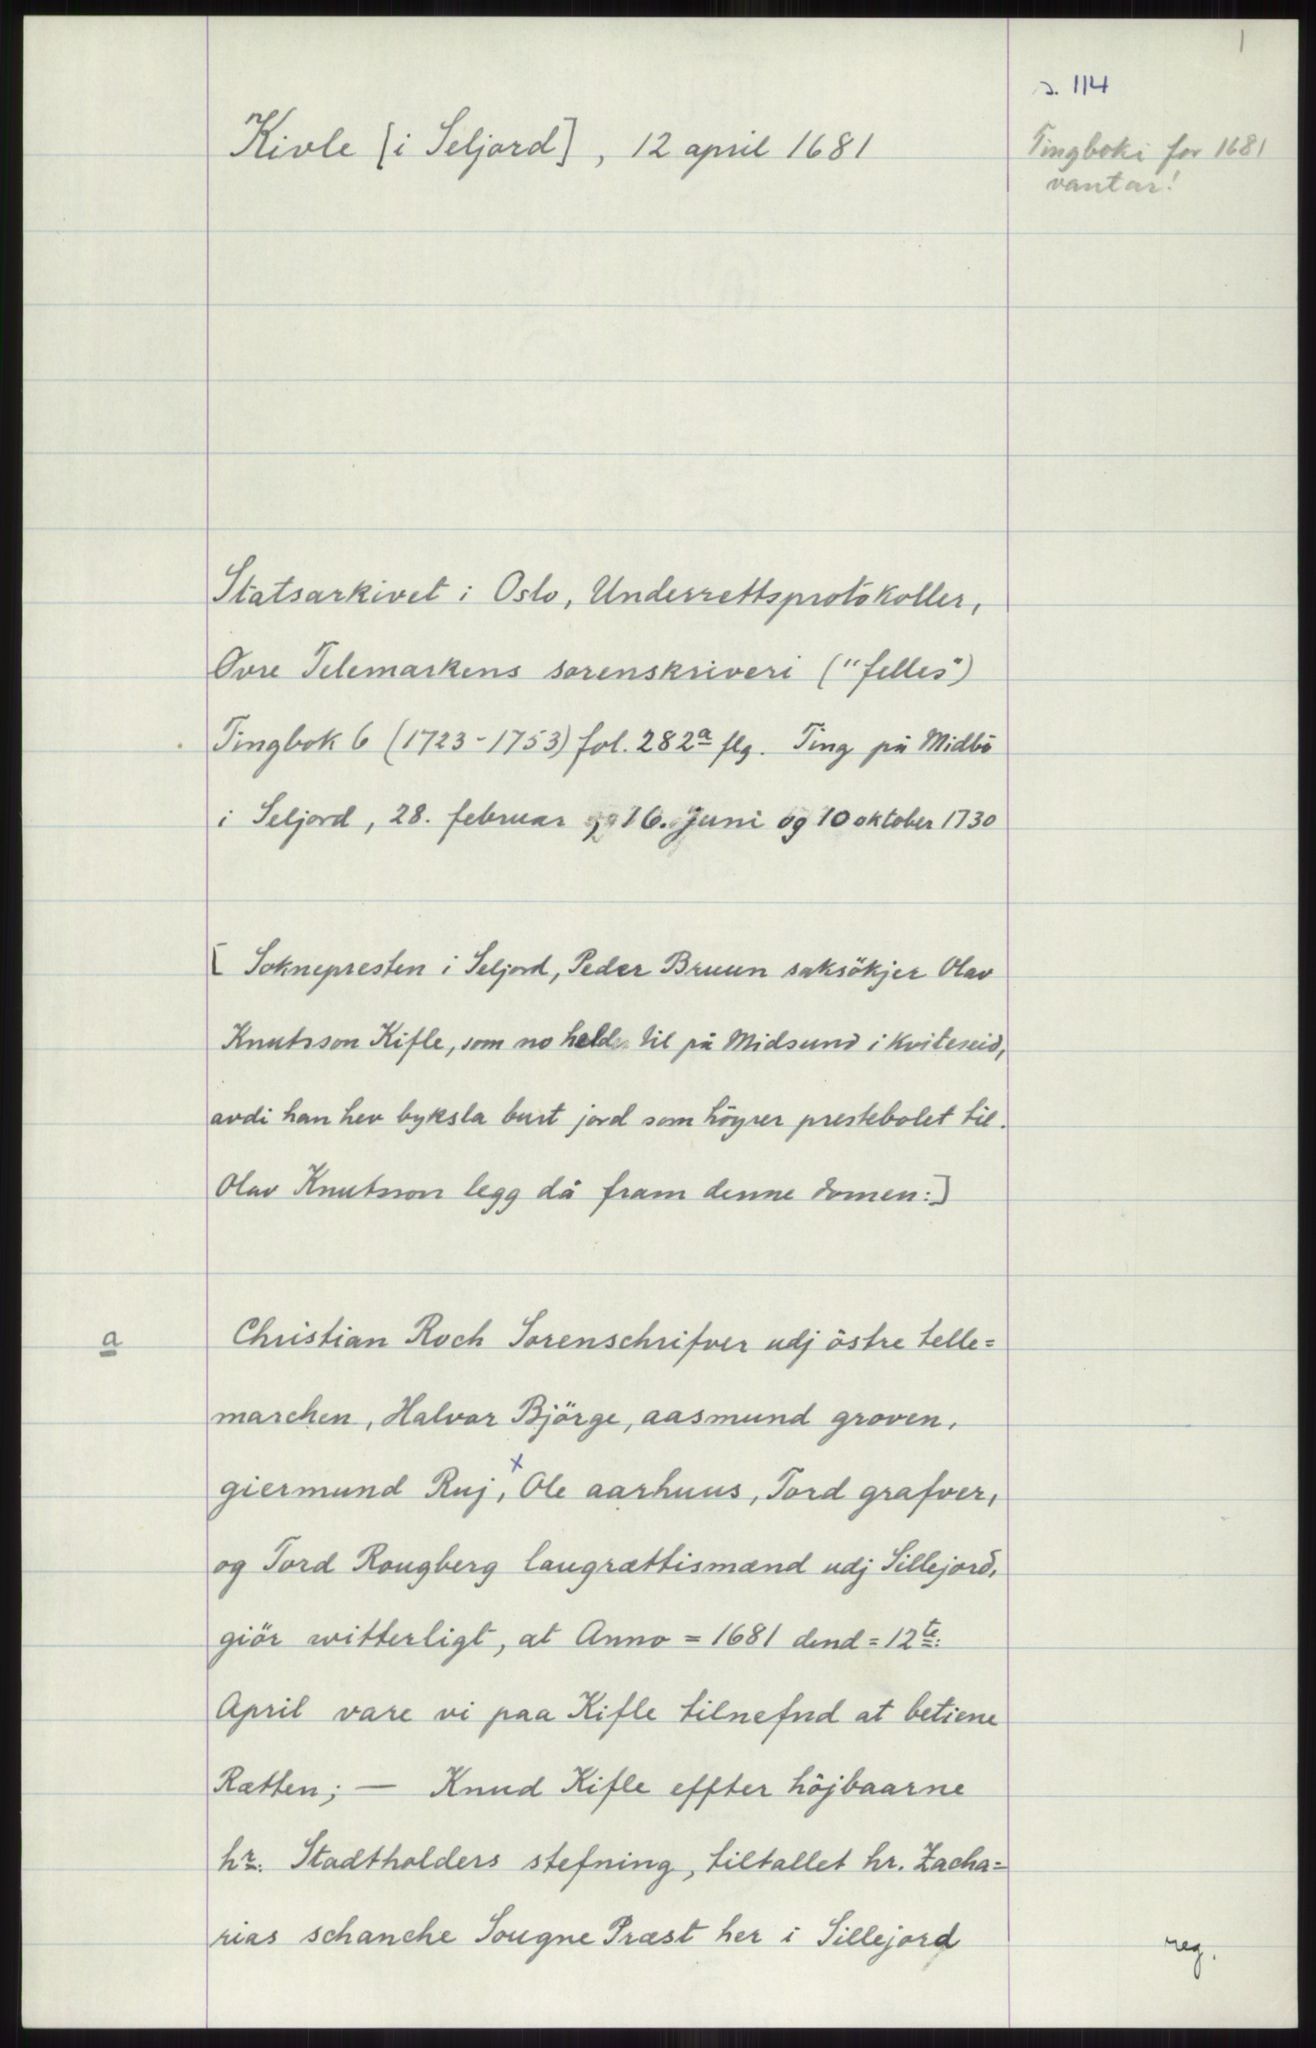 1
s. 114
Kivle [i Seljord], 12 april 1681
Tingboki for 1681
vantar!
Statsarkivet i Oslo, Underrettsprotokoller,
Øvre Telemarkens sorenskriveri ("felles")
Tingbok 6 (1723-1753) fol. 282a flg. Ting på Midbö
i Seljord, 28. februar og 16. juni og 10 oktober 1730
[Soknepresten i Seljord, Peder Bruun saksökjer Olav
Knutsson Kifle, som no held til på Midsund i Kviteseid,
avdi han hev byksla burt jord som höyrer prestebolet til.
Olav Knutsson legg då fram denne domen:]
a
Christian Roch Sorenschrifver udj östre telle=
marchen, Halvor Björge, aasmund groven,
giermund Ruj,x Ole aarhuus, Tord grafver,
og Tord Rougberg laugrættismænd udj Sillejord,
giör witterligt, at Anno = 1681 dend = 12te:
April vare vi paa Kifle tilnefnd at betiene
Rætten; — Knud Kifle effter höjbaarne
hr. Stadtholders stefning, tiltallet hr. Zacha=
rias schanche Sougne Præst her i Sillejord
reg.